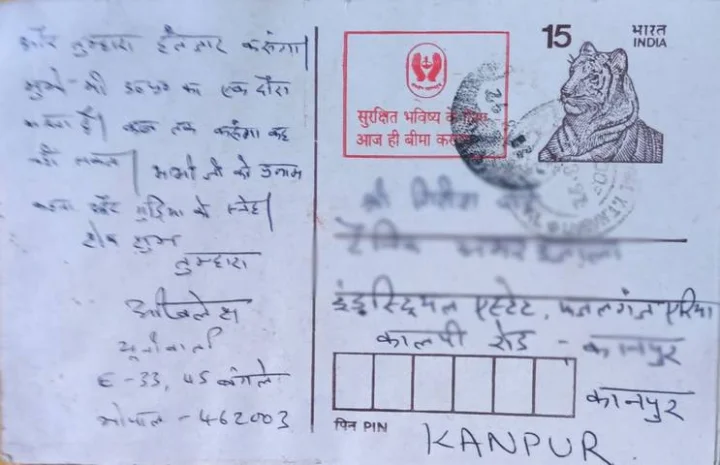 और तुम्हारा इंतजार करूंगा।
मुझे भी का एक दौरा
करना है। कब तक करूंगा कह
नहीं सकता। भाभी जी को प्रनाम
कहना और गुड़िया को स्नेह।
शेष शुभ
तुम्हारा
अखिलेश
यू.एन.वार्ता
E-33, 45 बंगले
भोपाल - 462003
सुरक्षित भविष्य के लिए
आज ही बीमा कराएं
15
भारत
INDIA
श्री
दैनिक
इंडस्ट्रियल एस्टेट, फजलगंज एरिया
कालपी रोड - कानपुर
कानपुर
पिन PIN
KANPUR